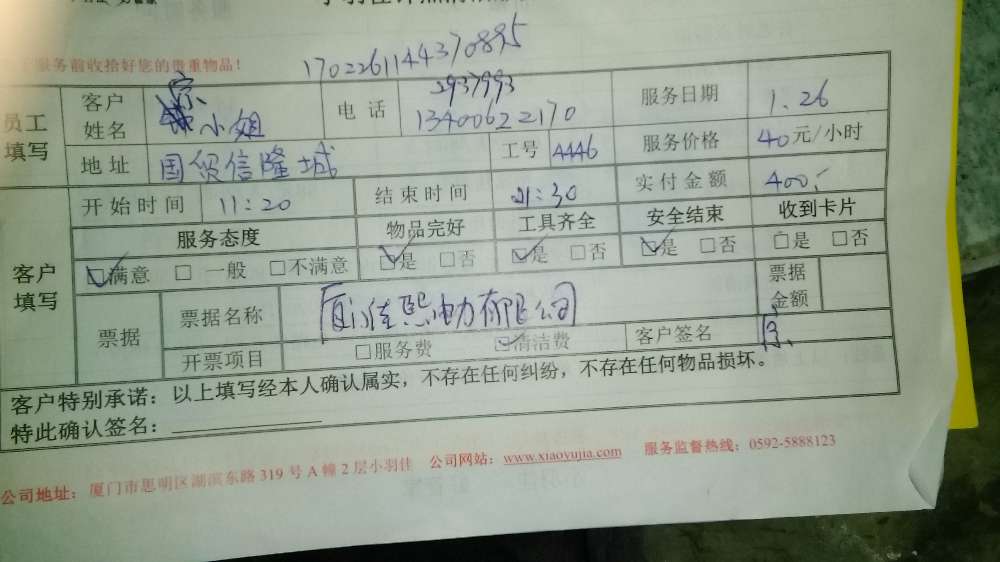 服务前收拾好您的贵重物品！
1702261144370895
员工填写
客户姓名 宗小姐 电话 2937993 13400622170 服务日期 1.26
地址 国贸信隆城 工号 4446 服务价格 40元/小时
开始时间 11:20 结束时间 21:30 实付金额 400.-
客户填写
服务态度 物品完好 工具齐全 安全结束 收到卡片
☑满意 □一般 □不满意 ☑是 □否 ☑是 □否 ☑是 □否 □是 □否
票据 票据名称 厦门佳熙电力有限公司 票据金额
开票项目 □服务费 ☑清洁费 客户签名
客户特别承诺：以上填写经本人确认属实，不存在任何纠纷，不存在任何物品损坏。
特此确认签名：
公司地址：厦门市思明区湖滨东路319号A幢2层小羽佳 公司网站：www.xiaoyujia.com 服务监督热线：0592-5888123